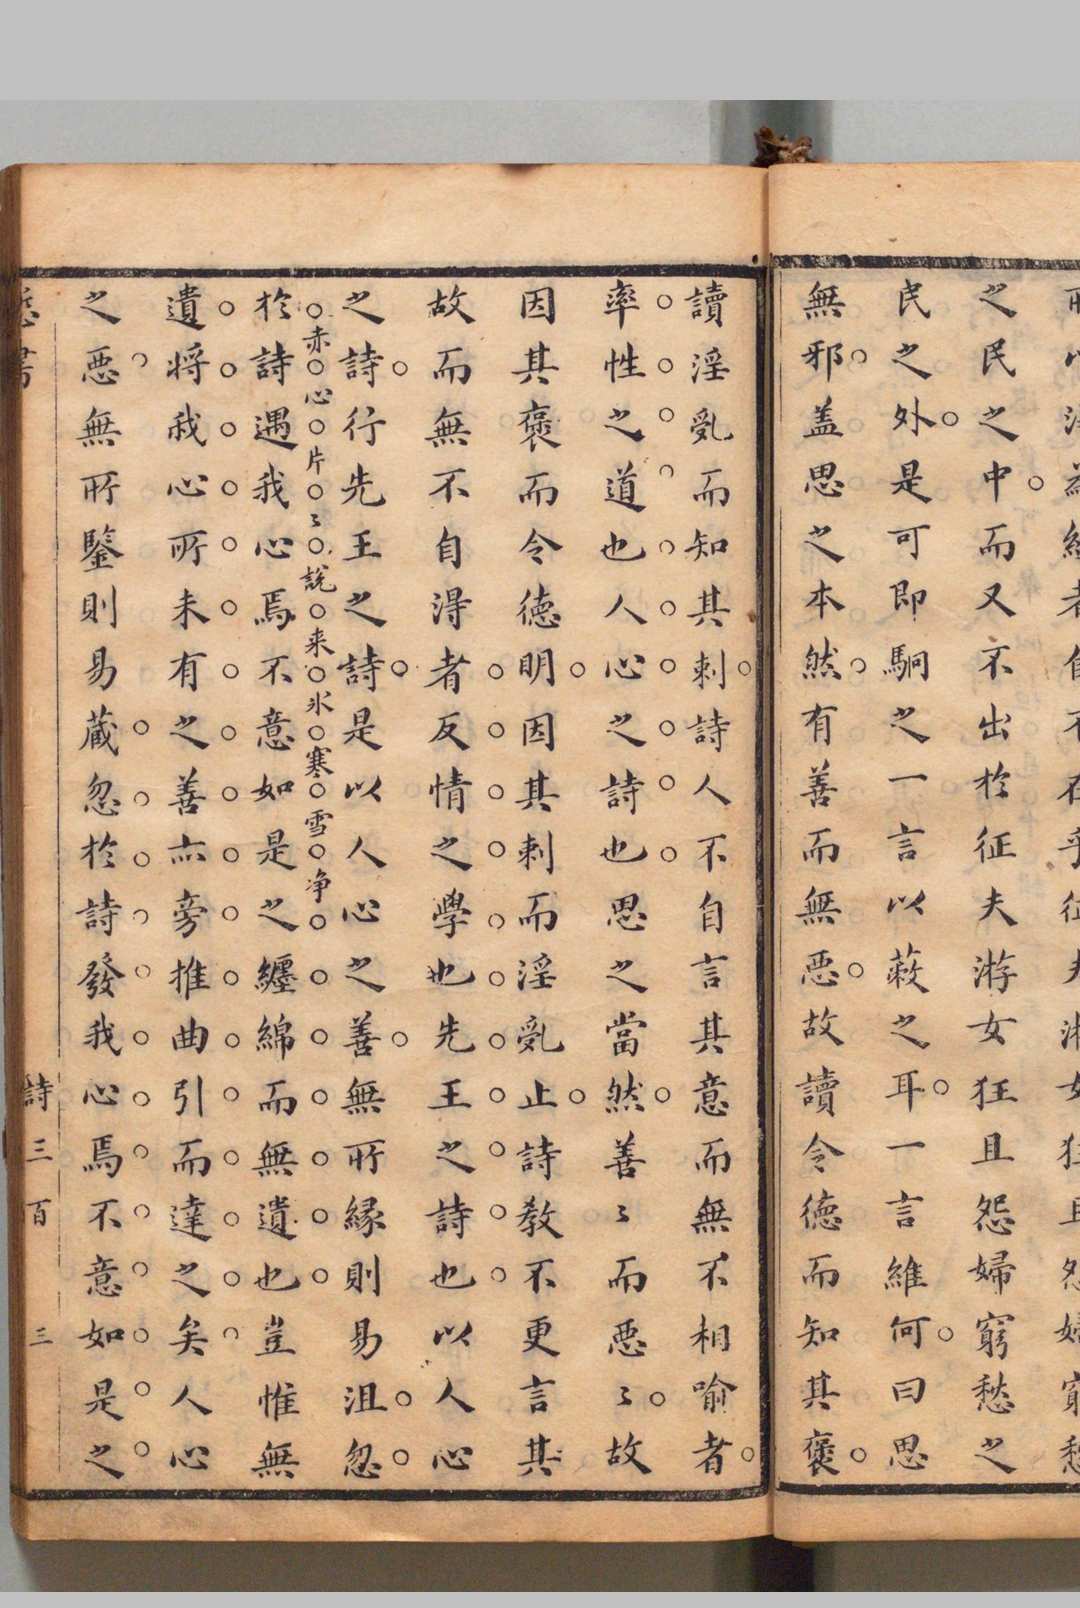 之民之中而又不出於征夫游女狂且怨婦窮愁之
民之外是可即駉之一言以蔽之耳一言維何曰思
無邪盖思之本然有善而無惡故讀令德而知其褒
讀淫乱而知其刺詩人不自言其意而無不相喻者
率性之道也人心之詩也思之當然善〻而惡〻故
因其褒而令德明因其刺而淫乱止詩教不更言其
故而無不自得者反情之學也先王之詩也以人心
之詩行先王之詩是以人心之善無所緣則易沮忽
赤心片〻說来氷寒雪净
於詩遇我心焉不意如是之纏綿而無遺也豈惟無
遺將我心所未有之善亦旁推曲引而達之矣人心
之惡無所鑒則易蔵忽於詩發我心焉不意如是之
詩三百 三